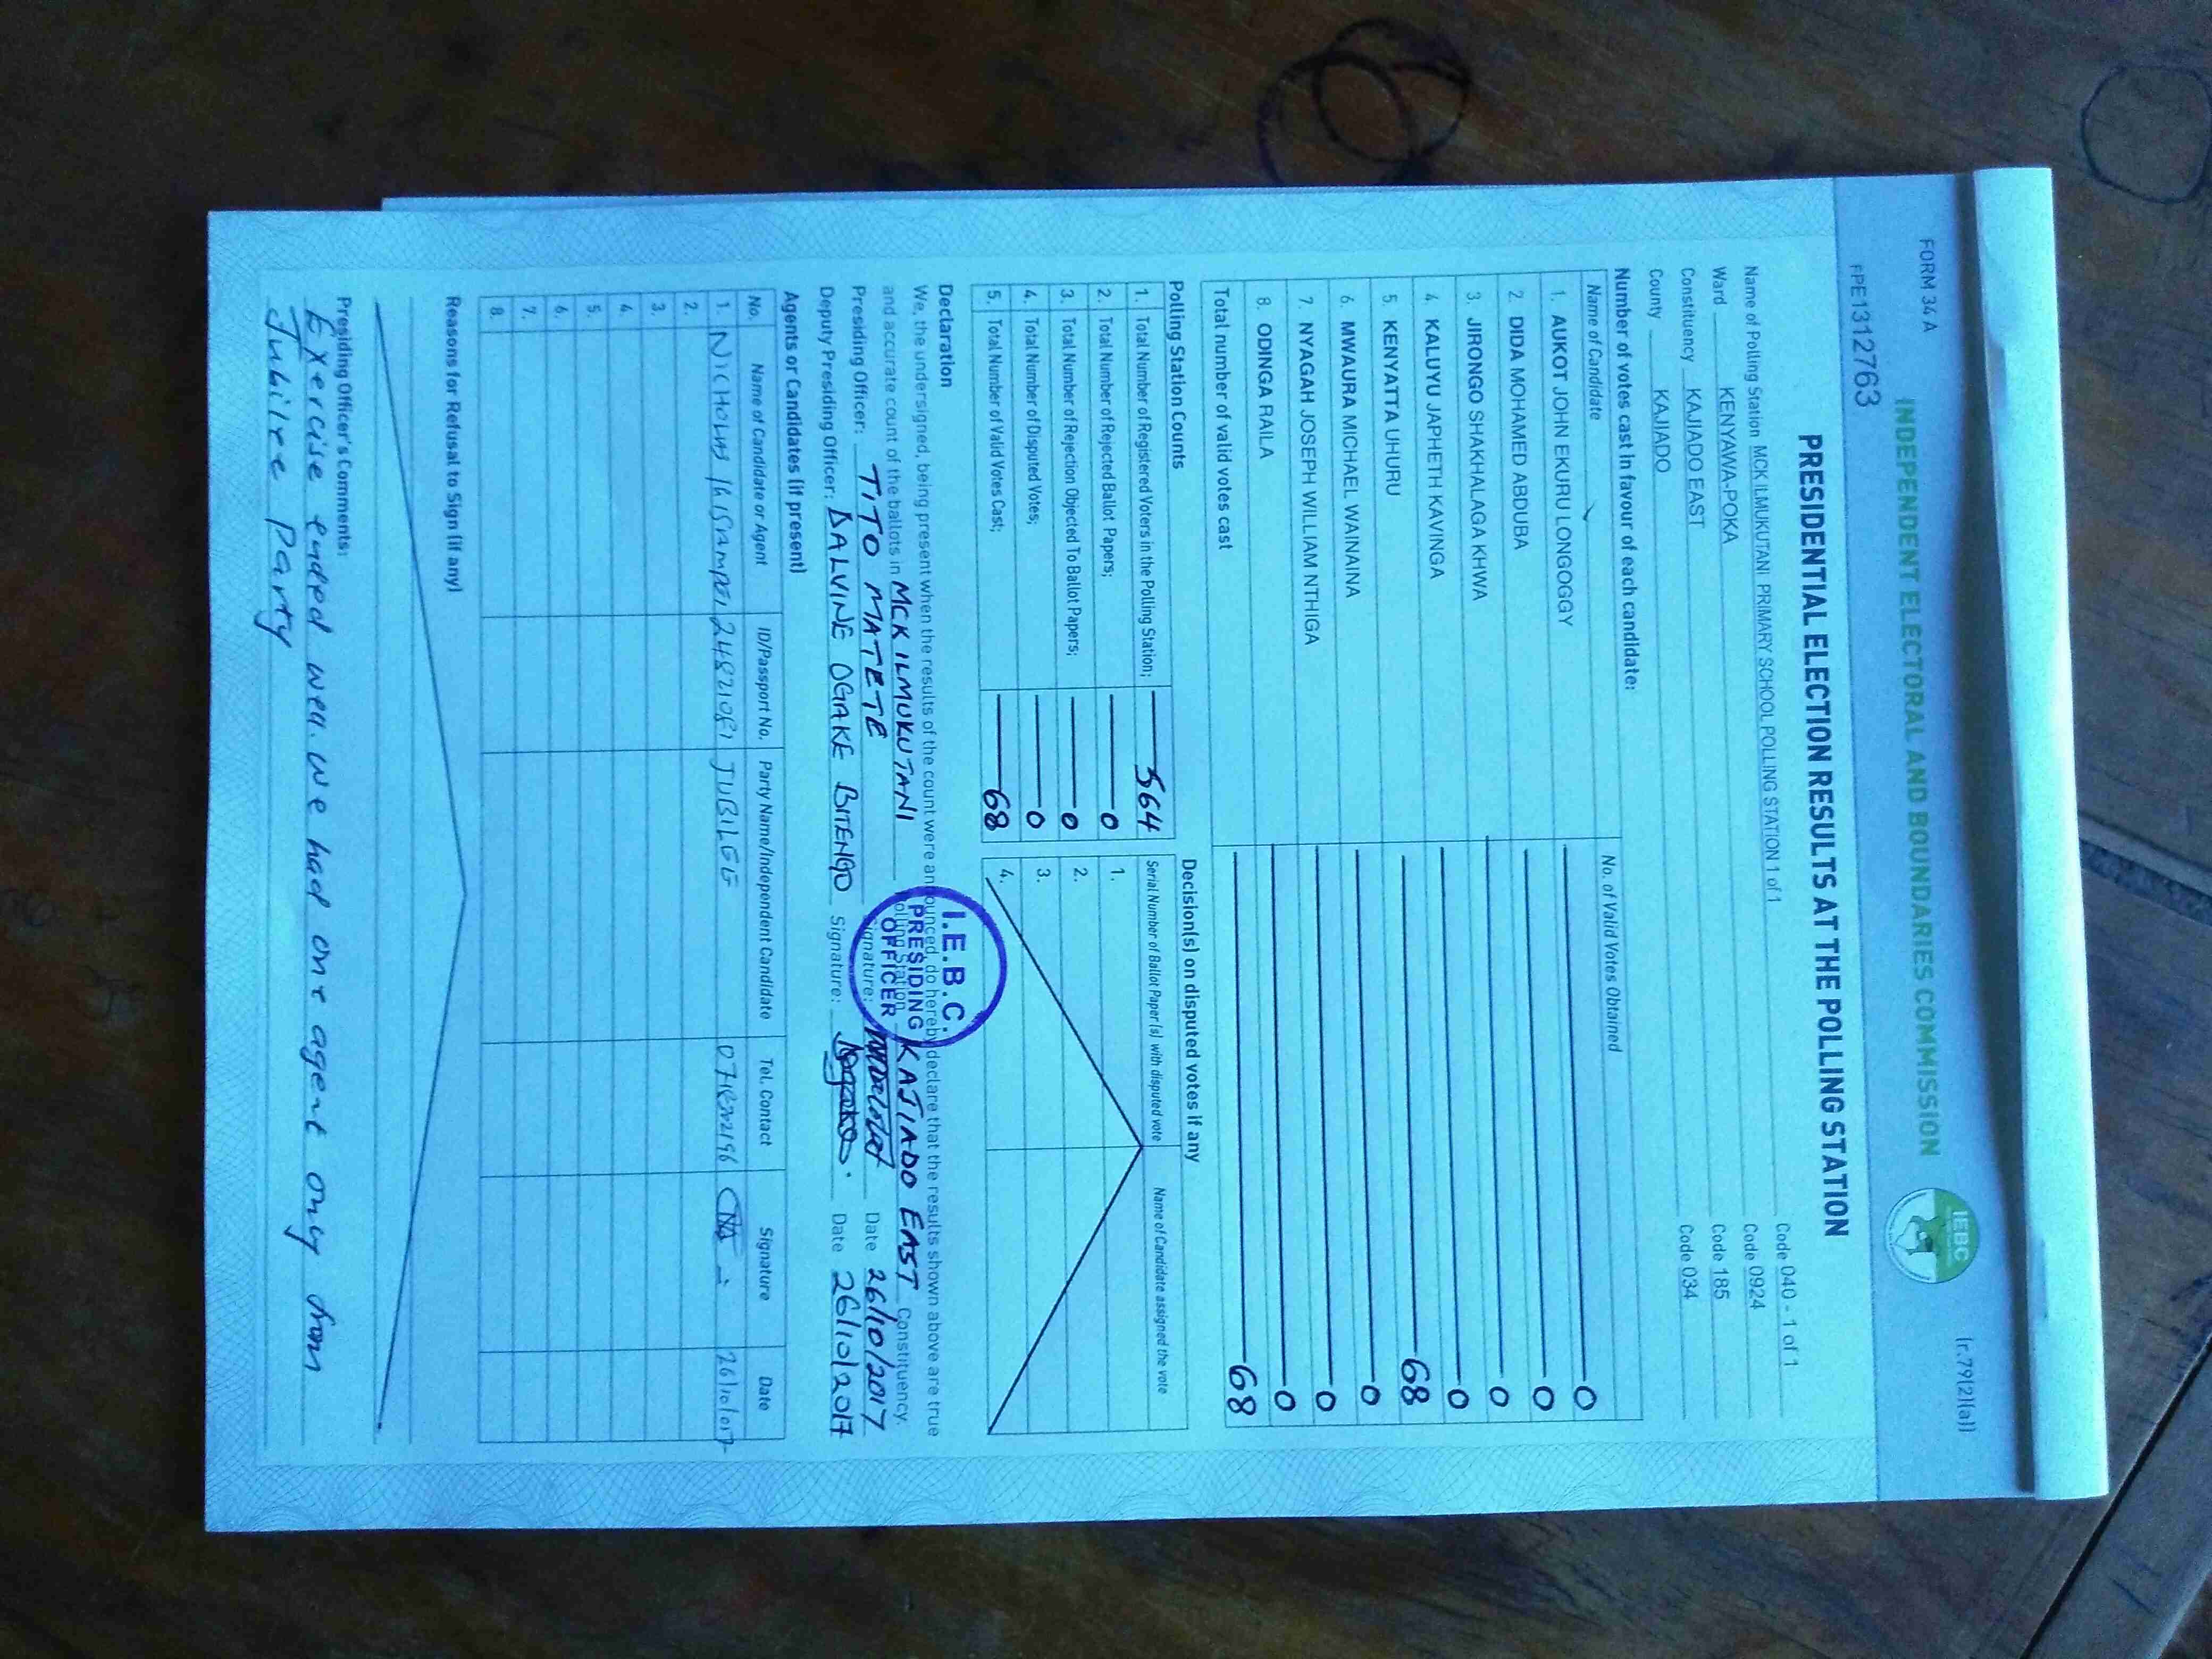 FORM 34 A
(r.79(2)(a))
INDEPENDENT ELECTORAL AND BOUNDARIES COMMISSION
IEBC
PRE1312763
PRESIDENTIAL ELECTION RESULTS AT THE POLLING STATION
Name of Polling Station MCK ILMUKUTANI PRIMARY SCHOOL POLLING STATION 1 of 1 Code 040 - 1 of 1
Ward KENYAWA-POKA Code 0924
Constituency KAJIADO EAST Code 185
County KAJIADO Code 034
Number of votes cast in favour of each candidate:
Name of Candidate No. of Valid Votes Obtained
1. AUKOT JOHN EKURU LONGOGGY 0
2. DIDA MOHAMED ABDUBA 0
3. JIRONGO SHAKHALAGA KHWA 0
4. KALUYU JAPHETH KAVINGA 0
5. KENYATTA UHURU 68
6. MWAURA MICHAEL WAINAINA 0
7. NYAGAH JOSEPH WILLIAM NTHIGA 0
8. ODINGA RAILA 0
Total number of valid votes cast 68
Polling Station Counts
1. Total Number of Registered Voters in the Polling Station; 564
2. Total Number of Rejected Ballot Papers; 0
3. Total Number of Rejection Objected To Ballot Papers; 0
4. Total Number of Disputed Votes; 0
5. Total Number of Valid Votes Cast; 68
Decision(s) on disputed votes if any
Serial Number of Ballot Paper (s) with disputed vote Name of Candidate assigned the vote
1.
2.
3.
4.
Declaration
We, the undersigned, being present when the results of the count were announced, do hereby declare that the results shown above are true
and accurate count of the ballots in MCK ILMUKUTANI Polling Station KAJIADO EAST Constituency.
Presiding Officer: TITO MATETE Signature: Date 26/10/2017
Deputy Presiding Officer: DALVINE OGAKE BITENGO Signature: Date 26/10/2017
I.E.B.C.
PRESIDING
OFFICER
Agents or Candidates (if present)
No. Name of Candidate or Agent ID/Passport No. Party Name/Independent Candidate Tel. Contact Signature Date
1. NICHOLUS JUBILEE
2.
3.
4.
5.
6.
7.
8.
Reasons for Refusal to Sign (if any)
Presiding Officer's Comments:
Exercise ended well. We had one agent only from
Jubilee Party